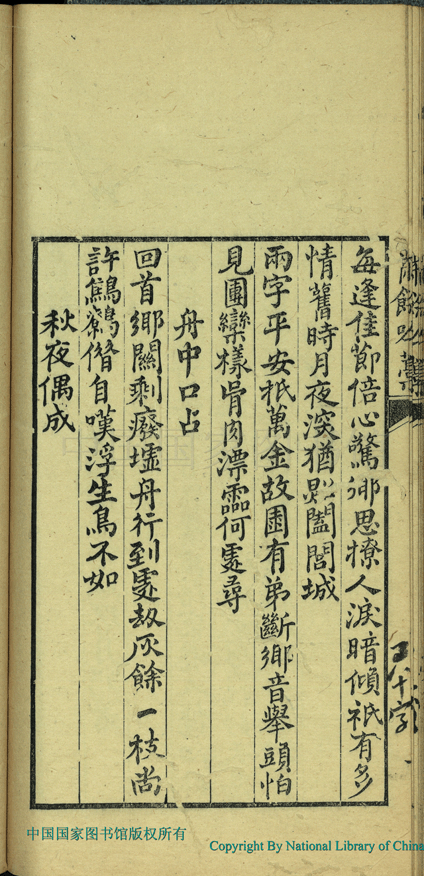 每逢佳節倍心驚鄉思撩人淚暗傾祇有多
情舊時月夜深猶照闔閭城
兩字平安祇萬金故園有弟斷鄉音舉頭怕
見團欒樣骨肉漂零何處尋
舟中口占
回首鄉關剩廢墟舟行到處劫灰餘一枝尚
許鷦鷯借自嘆浮生鳥不如
秋夜偶成
中国国家图书馆版权所有
Copyright By National Library of China